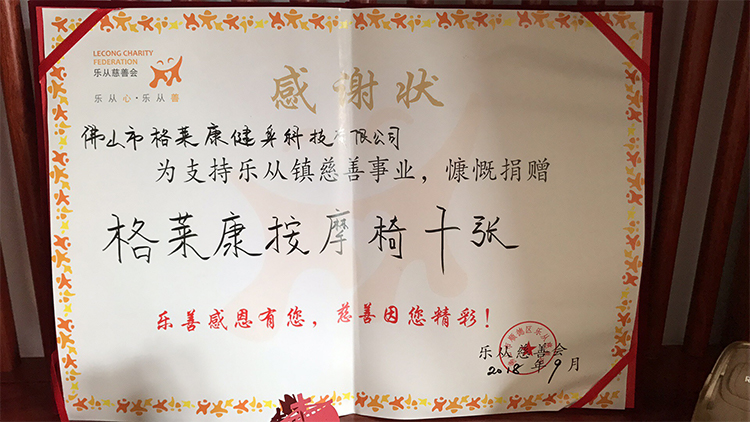 LECONG CHARITY
FEDERATION
乐从慈善会
乐从心·乐从善
感谢状
佛山市格莱康健身科技有限公司
为支持乐从镇慈善事业，慷慨捐赠
格莱康按摩椅十张
乐善感恩有您，慈善因您精彩！
顺德区乐从
乐从慈善会
2018年9月